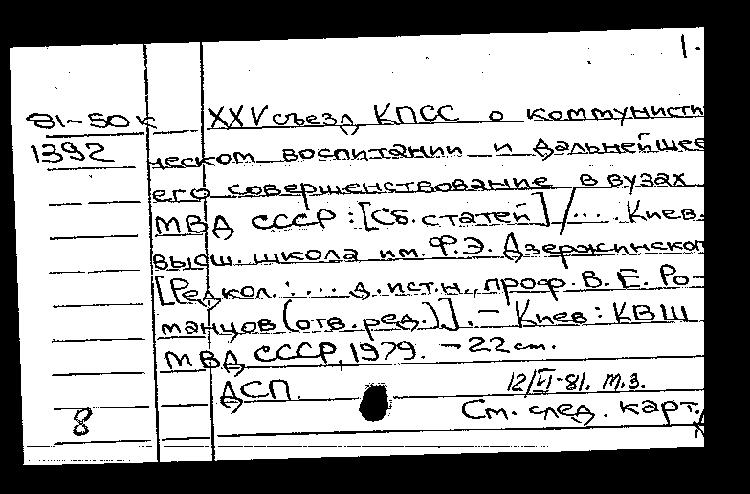 1.
81-50к XXV съезд КПСС о коммунисти
1392 ческом воспитании и дальнейшее
его совершенствование в вузах
МВД СССР : [Сб. статей] / ... Киев.
высш. школа им. Ф.Э. Дзержинског
[Редкол.: ... д. ист. н., проф. В. Е. Ро-
манцов (отв. ред.)]. - Киев : КВШ
МВД СССР, 1979. - 22 см.
ДСП. 12/VI-81. т.з.
8 См. след. карт.